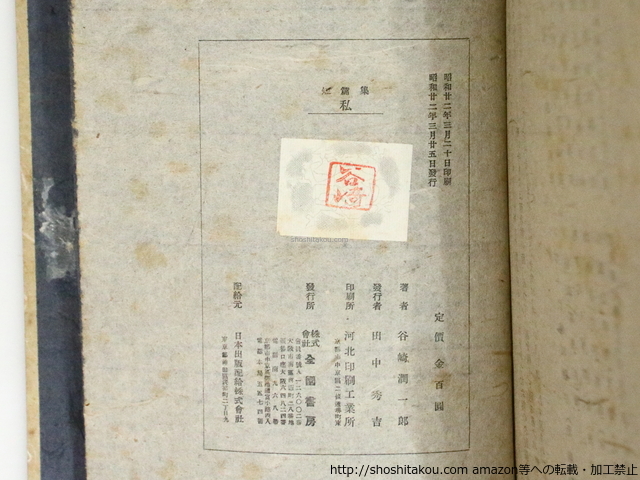 昭和廿二年三月二十日印刷
昭和廿二年三月廿五日發行
短篇集
私
谷崎
定價 金百圓
著者 谷崎潤一郎
發行者 田中秀吉
印刷所 河北印刷工業所
發行所 株式會社 全國書房
配給元 日本出版配給株式會社
shoshitakou.com
http://shoshitakou.com amazon等への転載・加工禁止